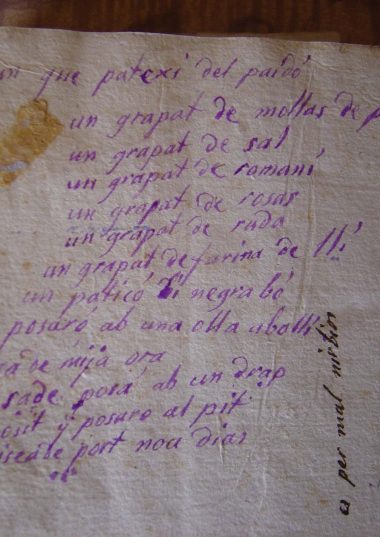 un que patexi del paidó
un grapat de mollas de p
un grapat de sal
un grapat de romaní
un grapat de rosas
un grapat de ruda
un grapat de farina de llí
un paticó vi negra bó
posaró ab una olla a bollí
de mija ora
posá ab un drap
y posuro al pit
port nou dias
es per mal